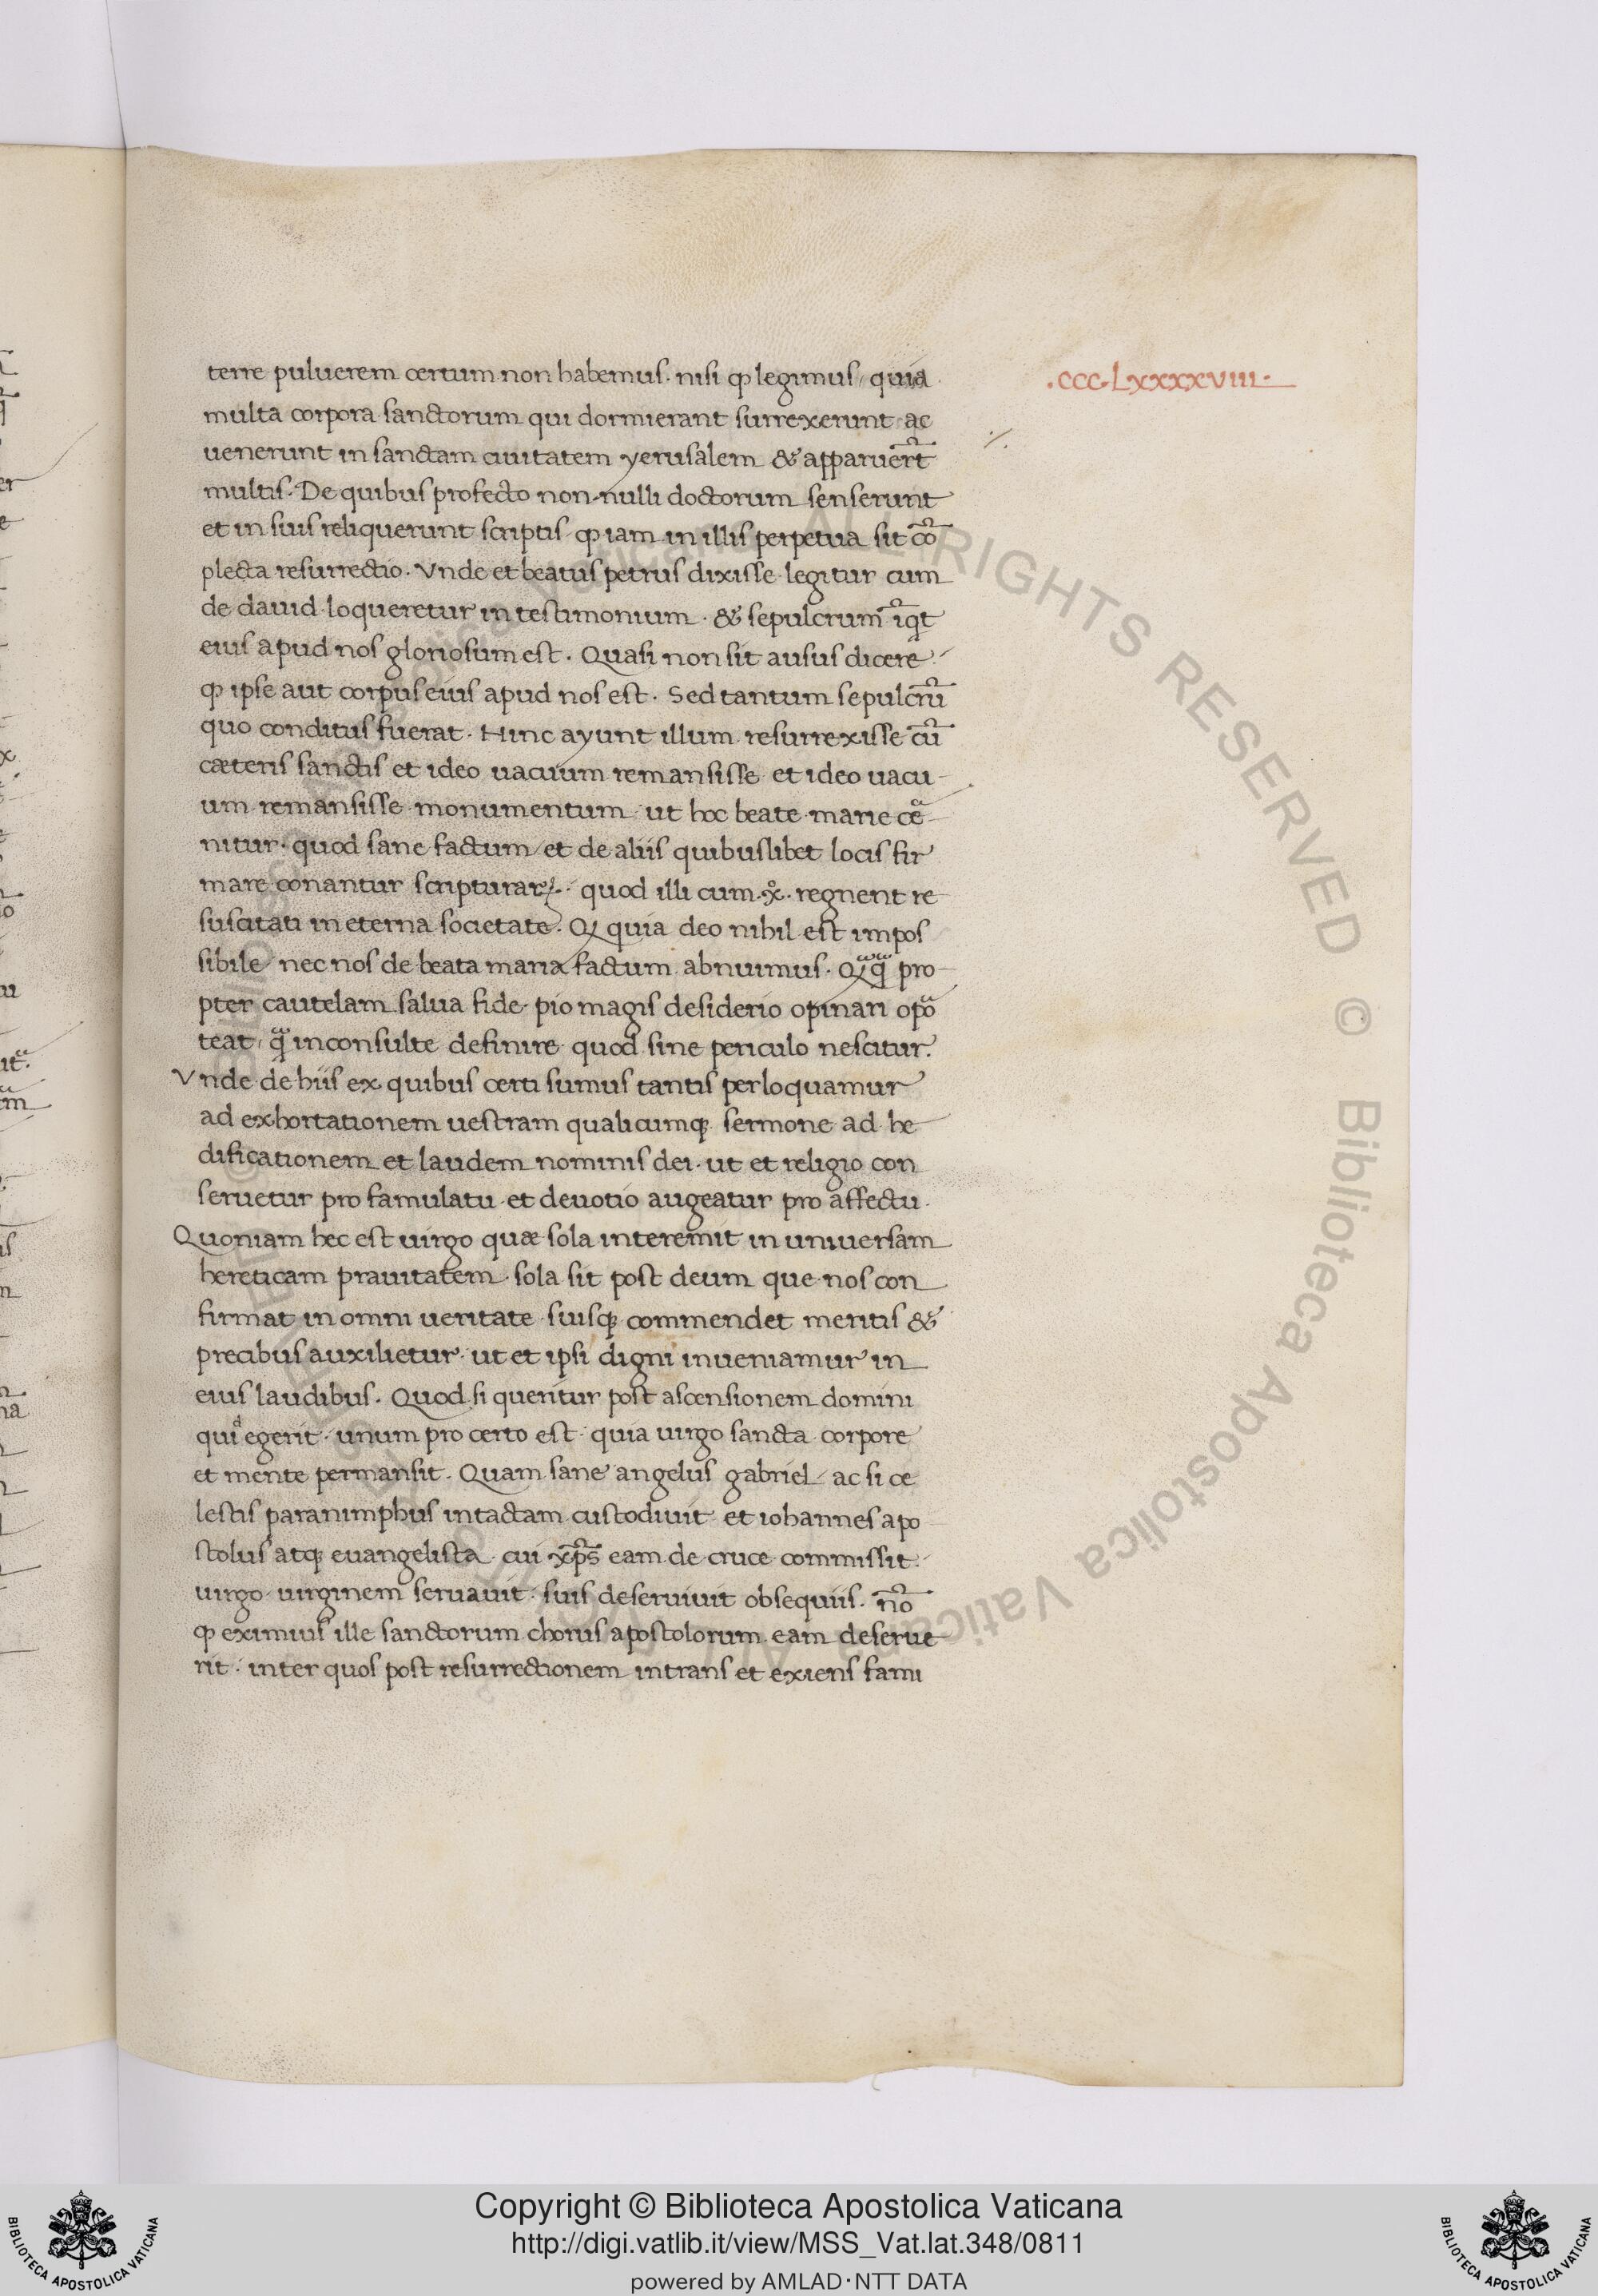 terre puluerem certum non habemus. nisi ꝙ legimus, quia
.CCC.LXXXXVIII.
multa corpora sanctorum qui dormierant surrexerunt ac
uenerunt in sanctam ciuitatem yerusalem & apparuer̄t
multis. De quibus profecto non nulli doctorum senserunt
et in suis reliquerunt scriptis ꝙ iam in illis perpetua sit cō
plecta resurrectio. Vnde et beatus petrus dixisse legitur cum
de dauid loqueretur in testimonium. & sepulcrum iq̄t
eius apud nos gloriosum est. Quasi non sit ausus dicere
ꝙ ipse aut corpus eius apud nos est. Sed tantum sepulcrū
quo conditus fuerat. Hinc ayunt illum resurrexisse cū
cæteris sanctis et ideo uacuum remansisse et ideo uacu-
um remansisse monumentum ut hoc beate marie cē
nitur. quod sane factum et de aliis quibuslibet locis fir
mare conantur scripturaꝝ. quod illi cum .x̊. regnent re
suscitati in eterna societate. Qꝫ quia deo nihil est impos
sibile nec nos de beata maria factum abnuimus. Qꝫq̄ pro-
pter cautelam salua fide pio magis desiderio opinari opō
teat, q̄ inconsulte definire quod sine periculo nescitur.
Vnde de hiis ex quibus certi sumus tantis per loquamur
ad exhortationem uestram qualicumqꝫ sermone ad he
dificationem et laudem nominis dei. ut et religio con
seruetur pro famulatu et deuotio augeatur pro affectu.
Quoniam hec est uirgo quæ sola interemit in uniuersam
hereticam prauitatem sola sit post deum que nos con
firmat in omni ueritate suisqꝫ commendet meritis &
precibus auxilietur. ut et ipsi digni inueniamur in
eius laudibus. Quod si queritur post ascensionem domini
quiͩ egerit. unum pro certo est quia uirgo sancta corpore
et mente permansit. Quam sane angelus gabriel ac si ce
lestis paranimphus intactam custodiuit et iohannes apo
stolus atqꝫ euangelista cui xp̄s eam de cruce commissit.
uirgo uirginem seruauit. suis deseruiuit obsequiis. nō
ꝙ eximius ille sanctorum chorus apostolorum eam deserue
rit. inter quos post resurrectionem intrans et exiens fami
© Biblioteca Apostolica Vaticana ALL RIGHTS RESERVED
Copyright © Biblioteca Apostolica Vaticana
http://digi.vatlib.it/view/MSS_Vat.lat.348/0811
powered by AMLAD·NTT DATA
BIBLIOTECA APOSTOLICA VATICANA
BIBLIOTECA APOSTOLICA VATICANA